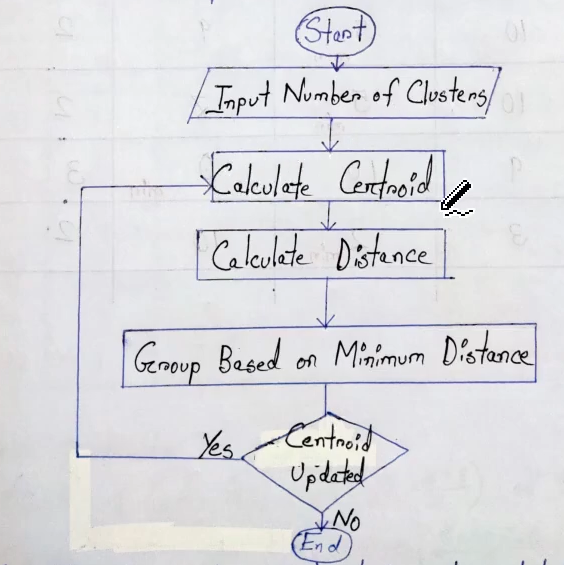 Start
Input Number of Clusters
Calculate Centroid
Calculate Distance
Group Based on Minimum Distance
Centroid
Updated
Yes
No
End